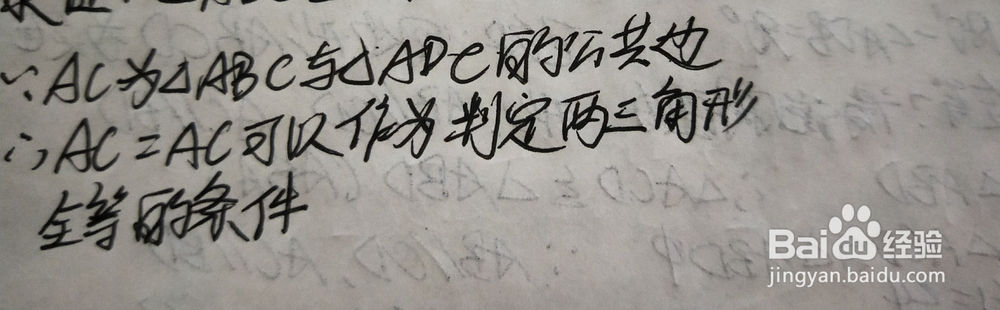 ∵AC为△ABC与△ADC的公共边
∴AC=AC可以作为判定两三角形
全等的条件
Baidu经验
jingyan.baidu.com